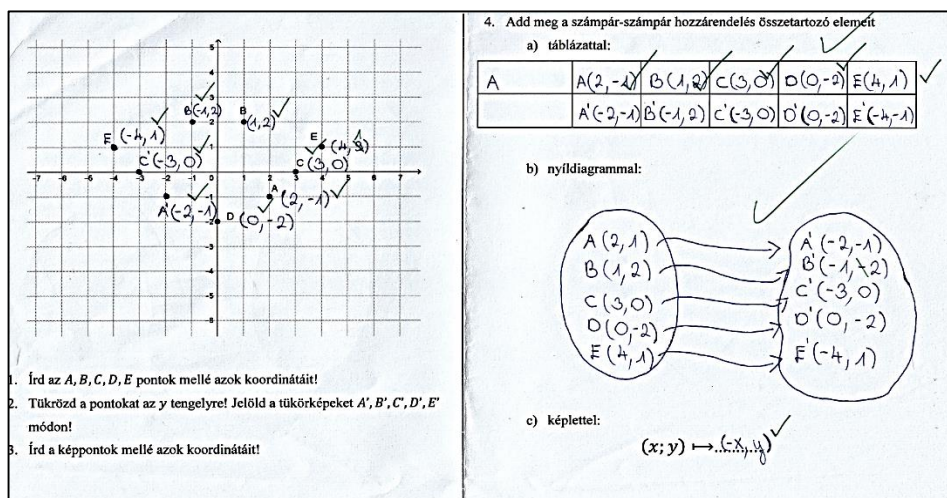 5
4
3
B(-1,2) B (1,2)
2
E (-4,1) E (4,1)
C'(-3,0) C (3,0)
-7 -6 -5 -4 -3 -2 -1 0 1 2 3 4 5 6 7
A'(-2,-1) A (2,-1)
-2 D (0,-2)
-3
-5
1. Írd az A, B, C, D, E pontok mellé azok koordinátáit!
2. Tükrözd a pontokat az y tengelyre! Jelöld a tükörképeket A', B', C', D', E'
módon!
3. Írd a képpontok mellé azok koordinátáit!
4. Add meg a számpár-számpár hozzárendelés összetartozó elemeit
a) táblázattal:
A A(2,-1) B(1,2) C(3,0) D(0,-2) E(4,1)
A'(-2,-1) B'(-1,2) C'(-3,0) D'(0,-2) E'(-4,-1)
b) nyíldiagrammal:
A(2,1) A'(-2,-1)
B(1,2) B'(-1,-2)
C(3,0) C'(-3,0)
D(0,-2) D'(0,-2)
E(4,1) E'(-4,1)
c) képlettel:
(x; y) ↦ (-x, y)